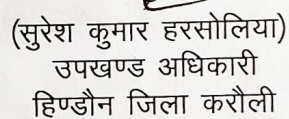 (सुरेश कुमार हरसोलिया)
उपखण्ड अधिकारी
हिण्डौन जिला करौली